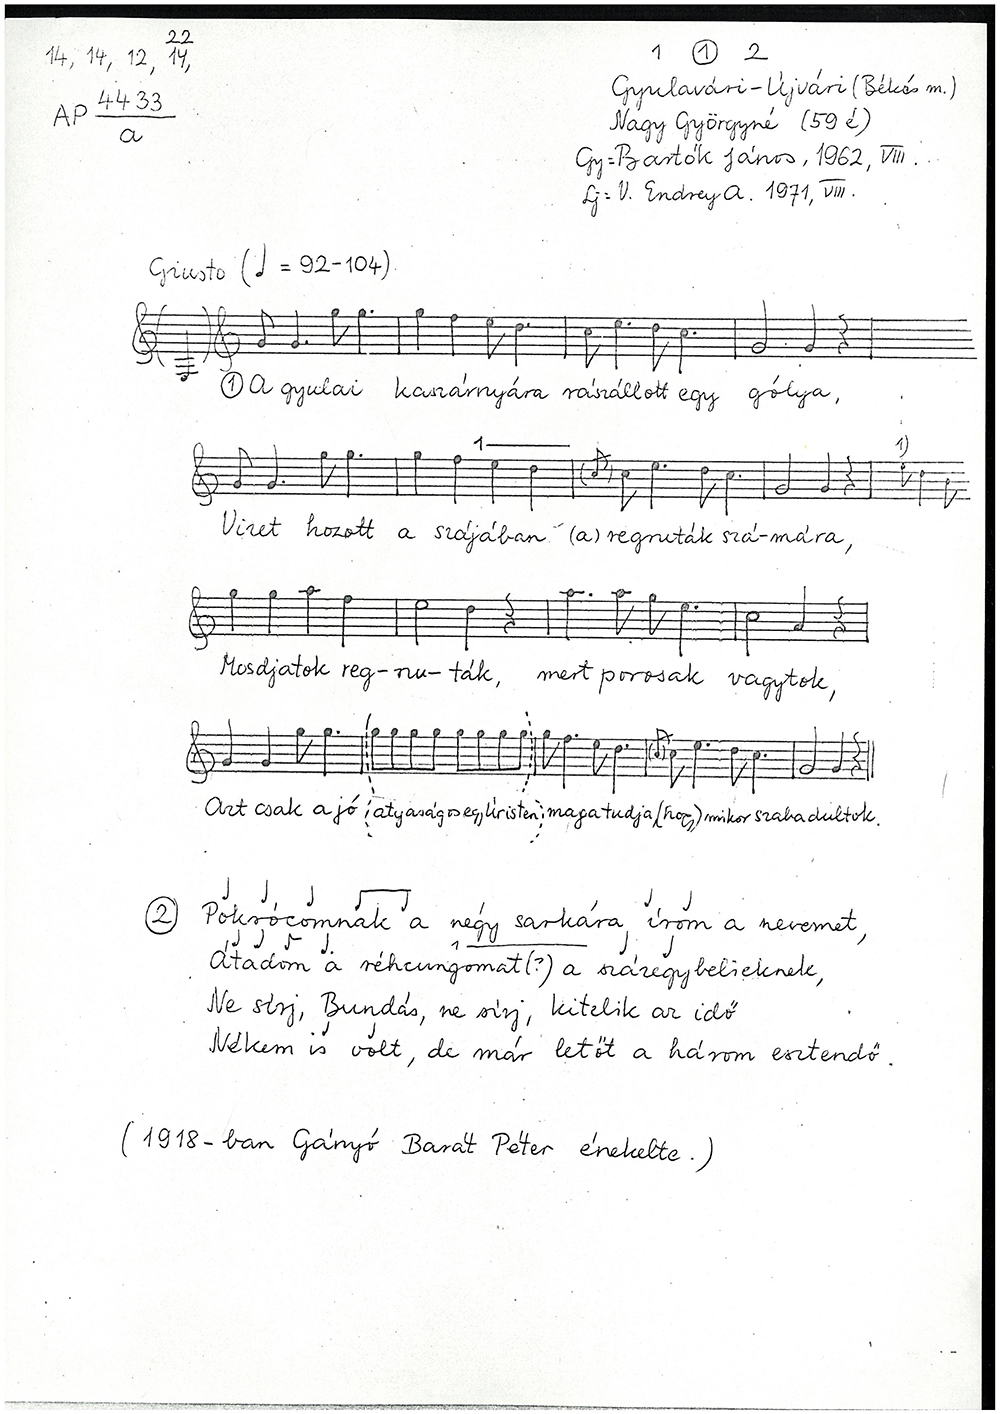 22
14, 14, 12, 14,
AP 4433
a
1 ① 2
Gyulavári-Újvári (Békés m.)
Nagy Györgyné (59 é)
Gy=Bartók János, 1962, VIII.
Lj= V. Endrey A. 1971, VIII.
Giusto (♩ = 92-104)
① A gyulai kaszárnyára rászállott egy gólya,
1
1)
Vizet hozott a szájában (a) regruták szá-mára,
Mosdjatok reg-ru-ták, mert porosak vagytok,
Azt csak a jó atyaságos egy Úristen maga tudja (hogy) mikor szabadultok.
② Pokrócomnak a négy sarkára írom a nevemet,
1
Átadom a réhcungomat (?) a százegybelieknek,
Ne sírj, Bundás, ne sírj, kitelik az idő
Nékem is volt, de már letőt a három esztendő.
(1918-ban Gányó Barát Péter énekelte.)